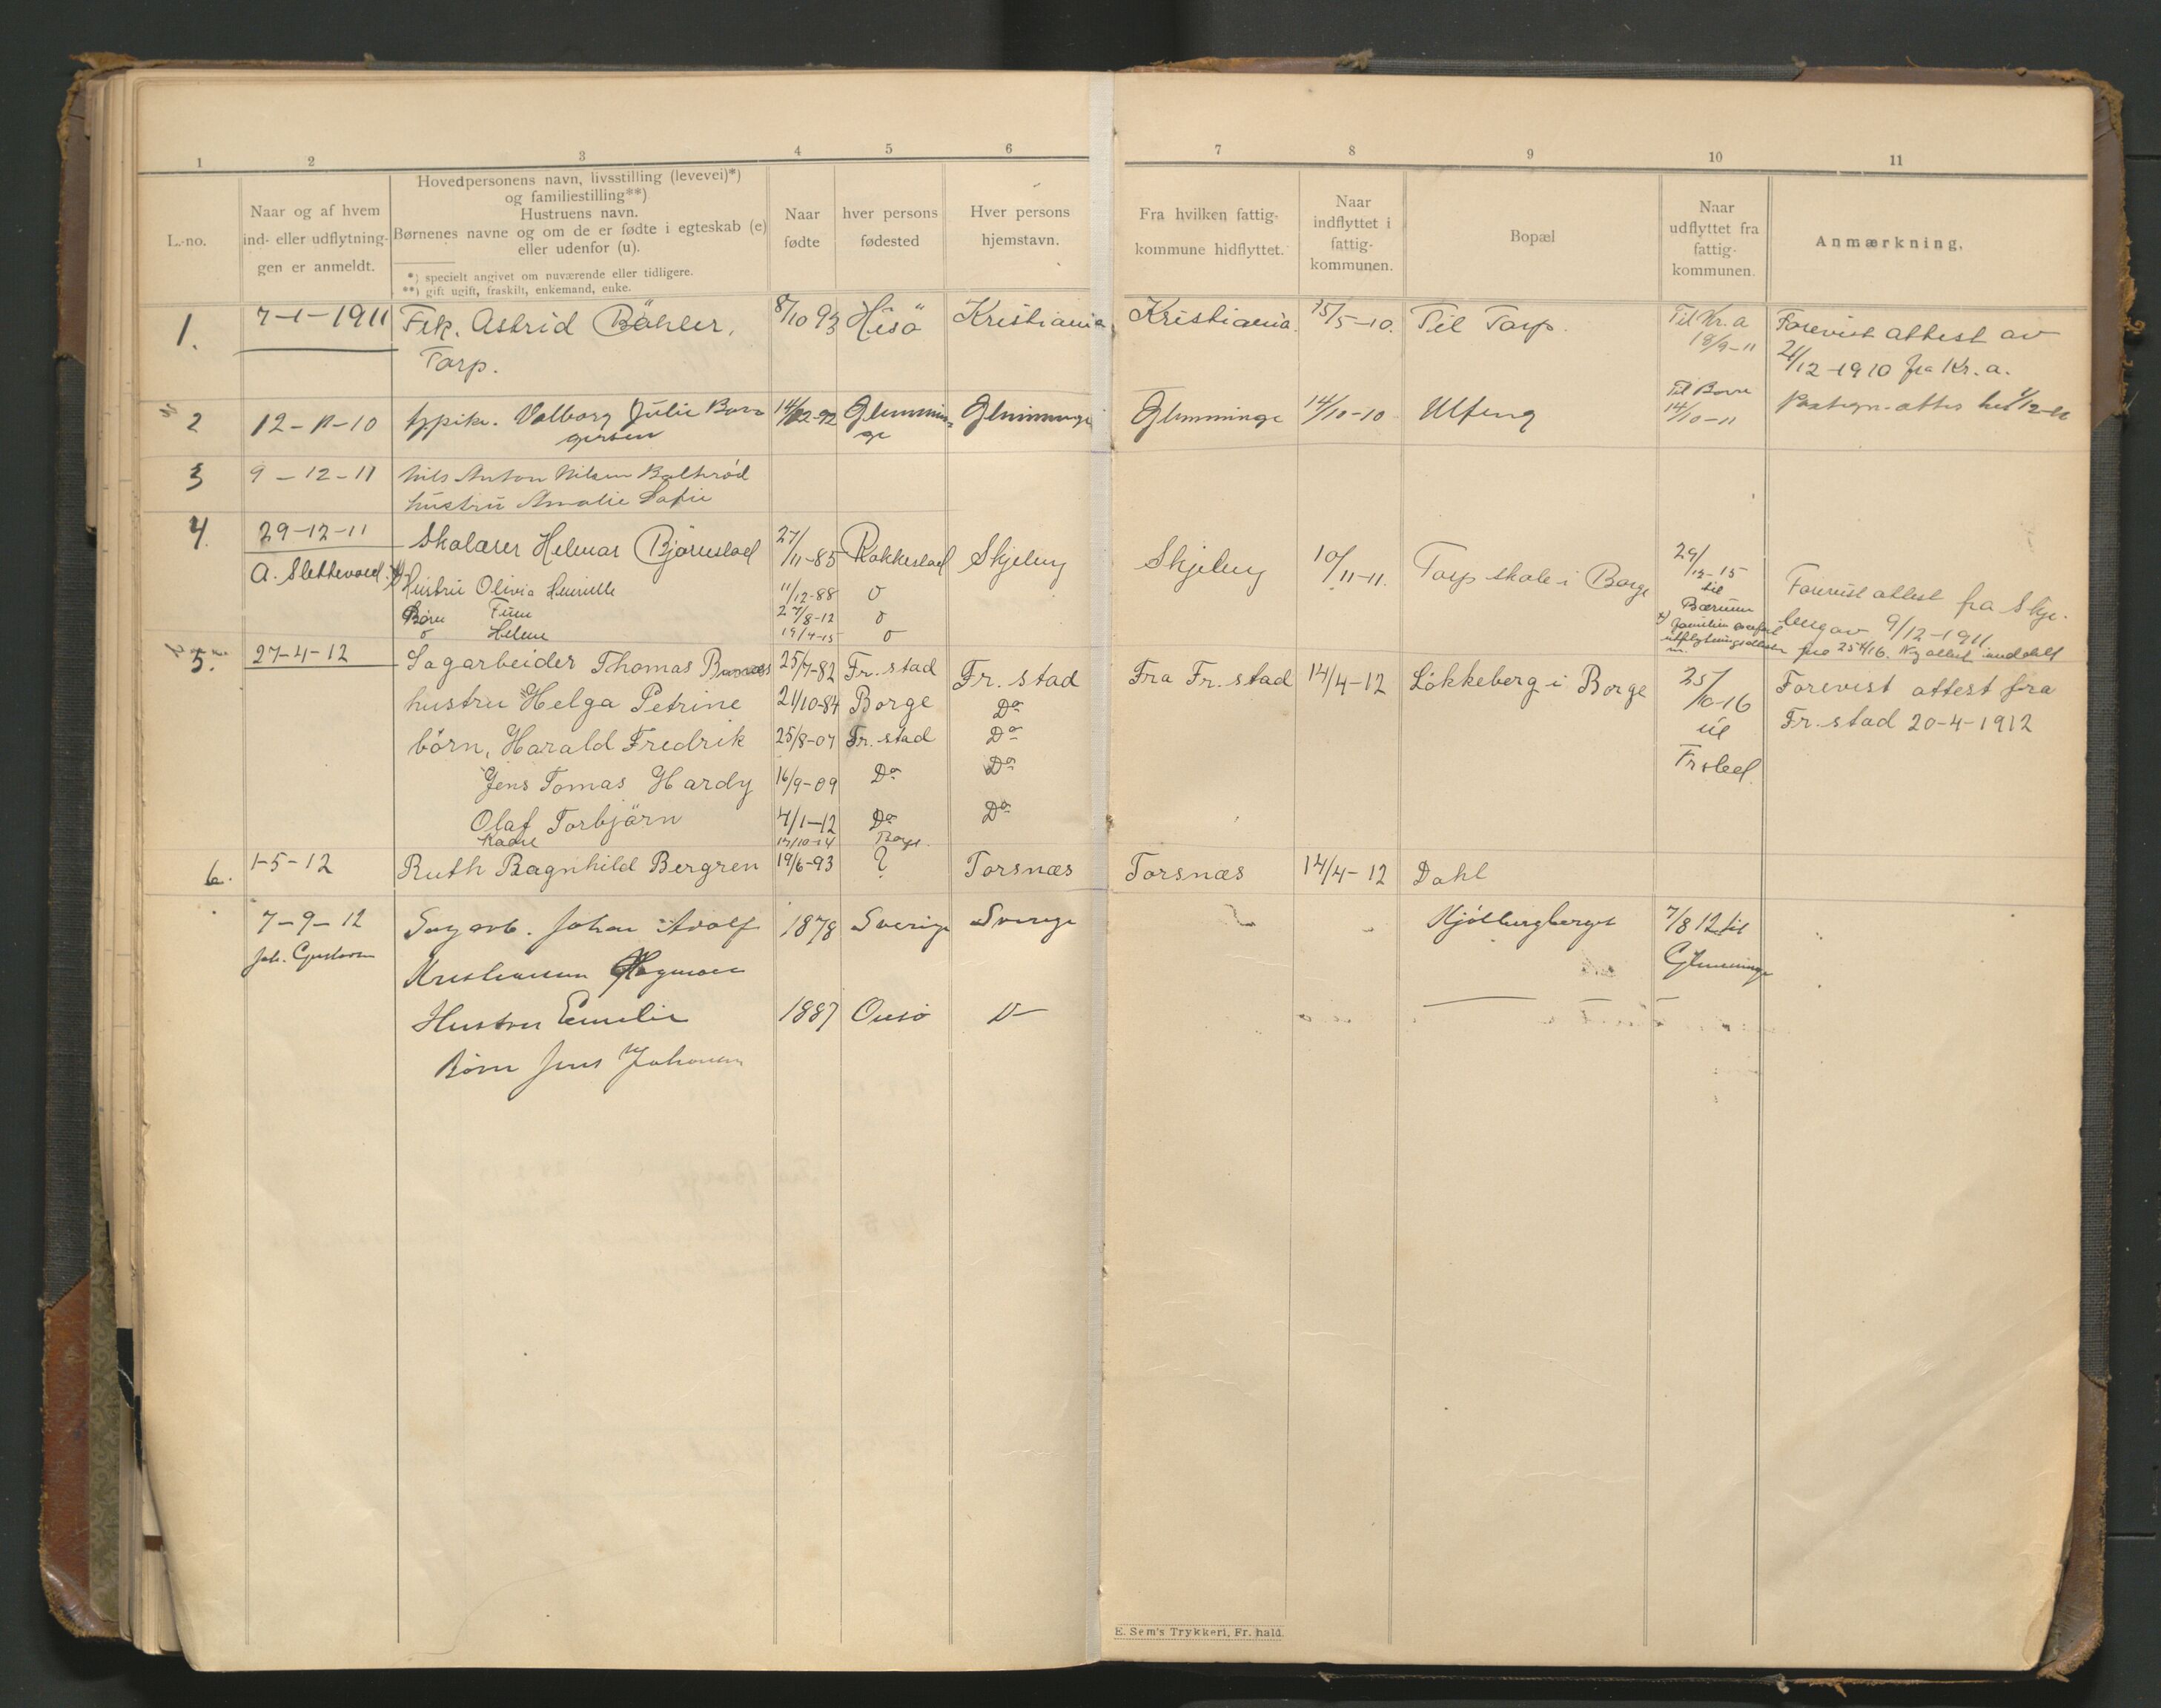 1 2 3 4 5 6 7 8 9 10 11
L.-no.
Naar og af hvem
ind- eller udflytnin-
gen er anmeldt.
Hovedpersonens navn, livsstilling (levevei)*)
og familiestilling**)
Hustruens navn.
Børnenes navne og om de er fødte i egteskab (e)
eller udenfor (u).
*) specielt angivet om nuværende eller tidligere.
**) gift ugift, fraskilt, enkemand, enke.
Naar
fødte
hver persons
fødested
Hver persons
hjemstavn.
Fra hvilken fattig-
kommune hidflyttet.
Naar
indflyttet i
fattig-
kommunen.
Bopæl
Naar
udflyttet fra
fattig-
kommunen.
Anmærkning.
1. 7-1-1911 Frk. Astrid Bähler. 8/10 93 Hisö Kristiania Kristiania. 15/5-10. Til Torp. Til Kr.a Forevist attest av
Torp. 18/9-11 21/12-1910 fra Kr. a.
2 12-11-10 Valborg Julie 14/ -92 Glemmin- Glemminge Glemminge 14/10-10 Til Borre
ge 14/10-11
3 9-12-11 Nils Anton Nilsen
hustru Amalie
4. 29-12-11 Skolærer Helmar Bjørnestad 27/11-85 Rakkestad Skjeberg Skjeberg 10/11-11. Torp skole i Borge 29/12-15
A. Slettevold. Hustru Olivia 11/12-88 til
Børn Finn 27/8-12 Bærum Forevist attest fra Skje-
Helene 19/4-15 berg av 9/12-1911
5. 27-4-12 Sagarbeider Thomas 25/7-82 Fr.stad Fr. stad Fra Fr. stad 14/4-12 Løkkeberg i Borge 25/10-16 Forevist attest fra
hustru Helga Petrine 21/10-84 Borge Do til Fr. stad 20-4-1912
börn, Harald Fredrik 25/8-07 Fr. stad Do
Jens Tomas Hardy 16/9-09 Do Do
Olaf Torbjärn 4/1-12 Do Do
Borge.
6. 1-5-12 Ruth Ragnhild Bergren 19/6-93 ? Torsnæs Torsnæs 14/4-12 Dahl
7-9-12 Sagarb. Johan Adolf 1878 Sverige Sverige 7/8 12 til
Glemminge
Hustru Emilie 1887 Onsö
Børn Jens Johansen
E. Sem's Trykkeri, Fr. hald.